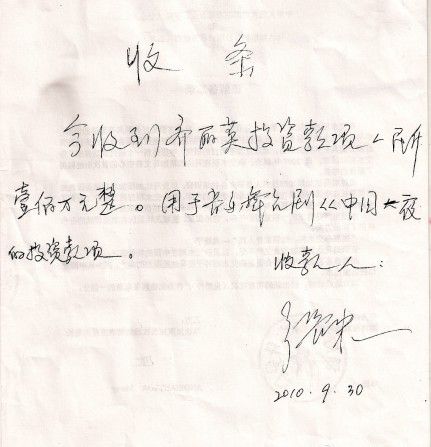 收条
今收到齐丽英投资款项人民币
壹佰万元整。用于音乐舞台剧《中国之夜
的投资款项。
收款人：
2010.9.30